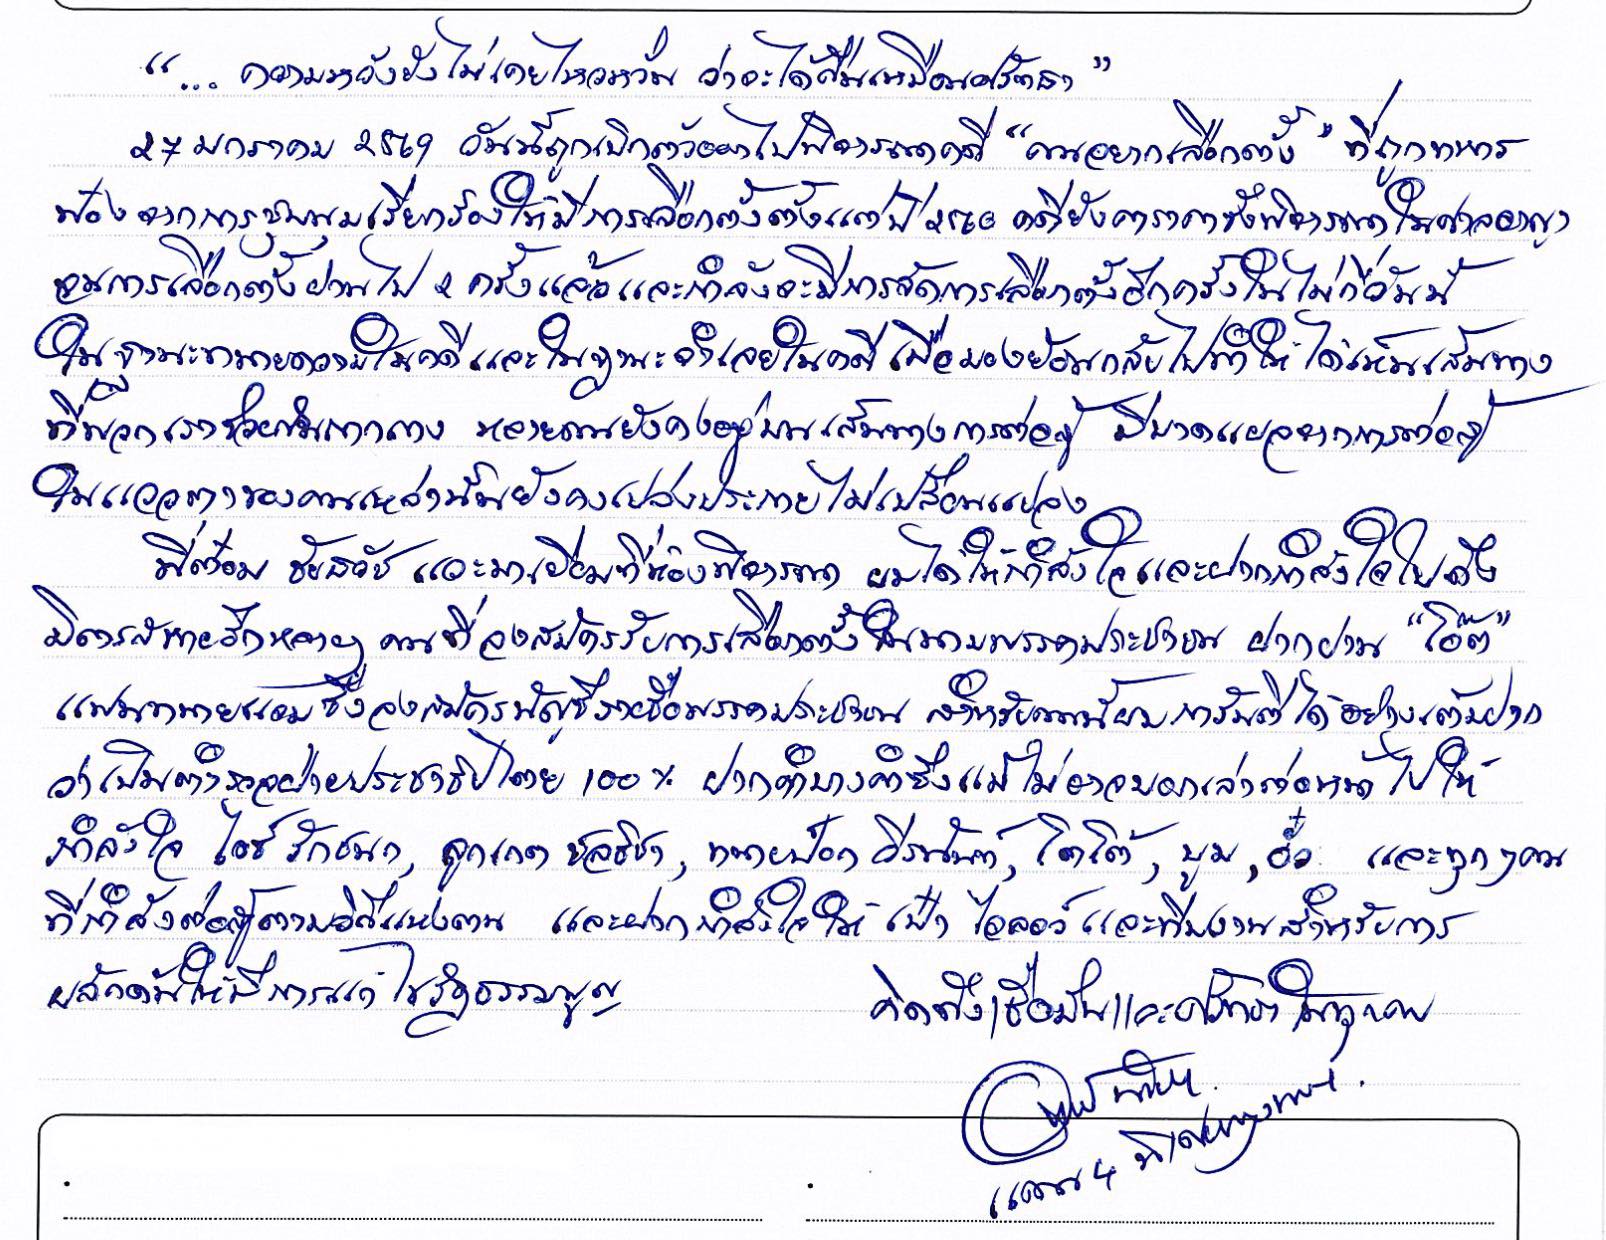 “... ความหวังยังไม่เคยไหวหวั่น ว่าจะได้คืนเหมือนศรัทธา”
27 มกราคม 2569 วันนี้ถูกเบิกตัวออกไปพิจารณาคดี “คนอยากเลือกตั้ง” ที่ถูกทหาร
ฟ้องจากการชุมนุมเรียกร้องให้มีการเลือกตั้งตั้งแต่ปี 2561 คดียังคาราคาซังพิจารณาในศาลอาญา
จนการเลือกตั้งผ่านไป 2 ครั้งแล้วและกำลังจะมีการจัดการเลือกตั้งอีกครั้งในไม่กี่วันนี้
ในฐานะทนายความในคดีและในฐานะจำเลยในคดี เมื่อมองย้อนกลับไปทำให้ได้เห็นเส้นทาง
ที่พวกเราช่วยกันถากถาง หลายคนยังคงอยู่บนเส้นทางการต่อสู้ มีบาดแผลจากการต่อสู้
ในแววตาของคนเหล่านั้นยังคงเปล่งประกายไม่เปลี่ยนแปลง
พี่ต๋อม ชัยธวัช แวะมาเยี่ยมที่ห้องพิจารณา ผมได้ให้กำลังใจและฝากกำลังใจไปถึง
มิตรสหายอีกหลายๆ คนที่ลงสมัครรับการเลือกตั้งในนามพรรคประชาชน ฝากผ่าน “โอ๊ต”
แฟนทนายแอมซึ่งลงสมัครบัญชีรายชื่อพรรคประชาชน สำหรับคนนี้ผมการันตีได้อย่างเต็มปาก
ว่าเป็นตำรวจฝ่ายประชาธิปไตย 100% ฝากคำบางคำซึ่งแม้ไม่อาจบอกเล่าต่อหน้าไปให้
กำลังใจ ไอซ์ รักชนก, ลูกเกด ชลธิชา, ทนายแจม, โตโต้, บูม, และทุกๆคน
ที่กำลังต่อสู้ตามวิถีแห่งตน และฝากกำลังใจให้ เป๋า ไอลอว์ และทีมงานสำหรับการ
ผลักดันให้มีการแก้ไขรัฐธรรมนูญ
คิดถึง/เชื่อมั่น/และศรัทธาในทุกคน
แดน 4